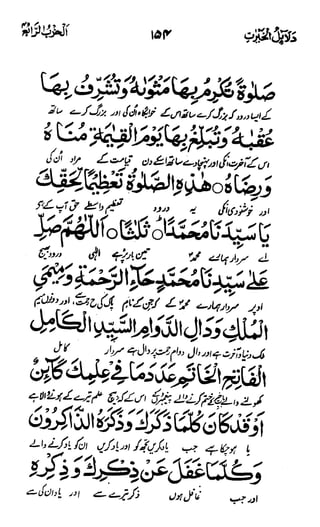 دلائل الخیرات ۱۵۴ الحزب الرابع
صَلٰوةً تُكْرِمُ بِهَا مَثْوٰىهُ وَتُشَرِّفُ بِهَا
کے ایسا درود کہ بزرگ کرے ساتھ اس کے خوابگاہ اُن کی اور بزرگ کرے ساتھ
عُقْبٰهُ وَتُبَلِّغُ بِهَا يَوْمَ الْقِيٰمَةِ مُنَاهُ
اس کے آخرت انکی اور پہنچاوے ساتھ اسکے دن قیامت کے مراد اُن کی
وَرِضَاهُ ○ هٰذِهِ الصَّلٰوةُ تَعْظِيْمًا لِّحَقِّكَ
اور خوشنودی انکی یہ درود تعظیم واسطے حق آپ کے
يَا سَيِّدَنَا مُحَمَّدُ ○ ثَلٰثًا ○ اَللّٰهُمَّ صَلِّ
اے سردار ہمارے محمد تین بار پڑھے الٰہی درود بھیج
عَلٰى سَيِّدِنَا مُحَمَّدٍ حَآءِ الرَّحْمَةِ وَمِيْمَيِ
اوپر سردار ہمارے محمد کے کے نام اور دو میم
الْمُلْكِ وَدَالِ الدَّوَامِ السَّيِّدِ الْكَامِلِ
ملک دنیا و آخرت ہے اور دال دوام پر دال ہے سردار کامل
الْفَاتِحِ الْخَاتِمِ عَدَدَ مَا فِيْ عِلْمِكَ كَآئِنٌ
کھولنے والے ختم کرنے والے اس کے کہ بیچ علم تیرے کے ہونے والا ہے
اَوْ قَدْ كَانَ كُلَّمَا ذَكَرَكَ وَذَكَرَهُ الذَّاكِرُوْنَ
یا ہو چکا ہے جب یاد کریں تجھ کو اور یاد کریں ان کو یاد کرنے والے
وَكُلَّمَا غَفَلَ عَنْ ذِكْرِكَ وَذِكْرِهِ
اور جب غافل ہوں ذکر تیرے سے اور یاد ان کی سے